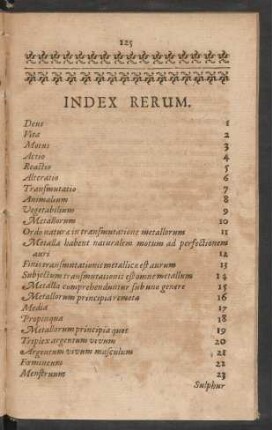 125
INDEX RERUM.
Deus 1
Vita 2
Motus 3
Actio 4
Reactio 5
Alteratio 6
Transmutatio 7
Animalium 8
Vegetabilium 9
Metallorum 10
Ordo naturæ in transmutatione metallorum 11
Metalla habent naturalem motum ad perfectionem
auri 12
Finis transmutationis metallicæ est aurum 13
Subjectum transmutationis est omne metallum 14
Metalla comprehenduntur sub uno genere 15
Metallorum principia remota 16
Media 17
Propinqua 18
Metallorum principia quot 19
Triplex argentum vivum 20
Argentum vivum masculum 21
Fæmineum 22
Menstruum 23
Sulphur